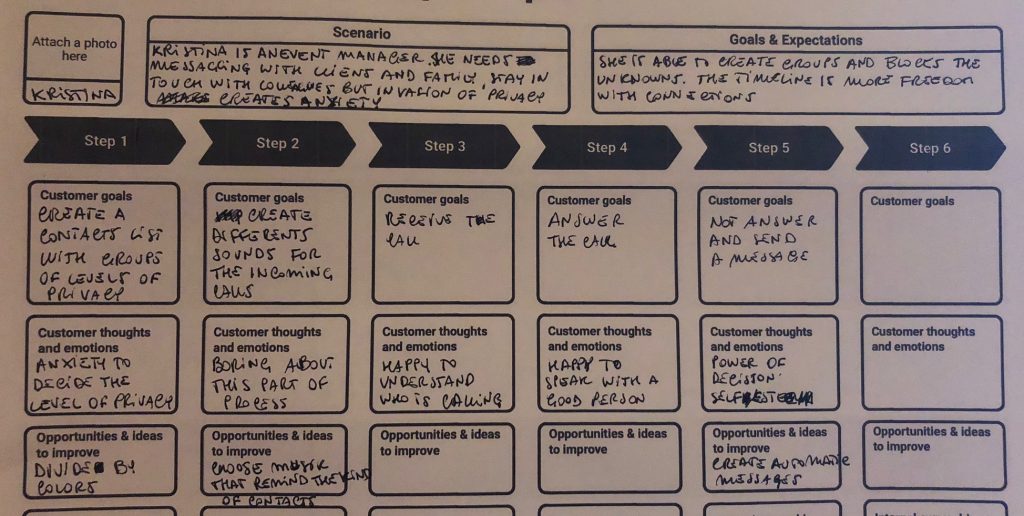 Attach a photo
here
KRISTINA
Scenario
KRISTINA IS AN EVENT MANAGER. SHE NEEDS
MESSACKING WITH CLIENT AND FAMILY, STAY IN
TOUCH WITH BUT INVASION OF PRIVACY
CREATES ANXIETY
Goals & Expectations
SHE IS ABLE TO CREATE GROUPS AND BLOCKS THE
UNKNOWNS. THE TIMELINE IS MORE FREEDOM
WITH CONNECTIONS
Step 1
Step 2
Step 3
Step 4
Step 5
Step 6
Customer goals
CREATE A
CONTACTS LIST
WITH GROUPS
OF LEVELS OF
PRIVACY
Customer goals
CREATE
DIFFERENTS
SOUNDS FOR
THE INCOMING
CALLS
Customer goals
RECEIVE THE
CALL
Customer goals
ANSWER
THE CALL
Customer goals
NOT ANSWER
AND SEND
A MESSAGE
Customer goals
Customer thoughts
and emotions
ANXIETY TO
DECIDE THE
LEVEL OF PRIVACY
Customer thoughts
and emotions
BORING ABOUT
THIS PART OF
PROCESS
Customer thoughts
and emotions
HAPPY TO
UNDERSTAND
WHO IS CALLING
Customer thoughts
and emotions
HAPPY TO
SPEAK WITH A
GOOD PERSON
Customer thoughts
and emotions
POWER OF
DECISION.
Customer thoughts
and emotions
Opportunities & ideas
to improve
DIVIDE BY
COLORS
Opportunities & ideas
to improve
CHOOSE MUSIK
THAT REMIND THE KIND
OF CONTACTS
Opportunities & ideas
to improve
Opportunities & ideas
to improve
Opportunities & ideas
to improve
CREATE AUTOMATIC
MESSAGES
Opportunities & ideas
to improve